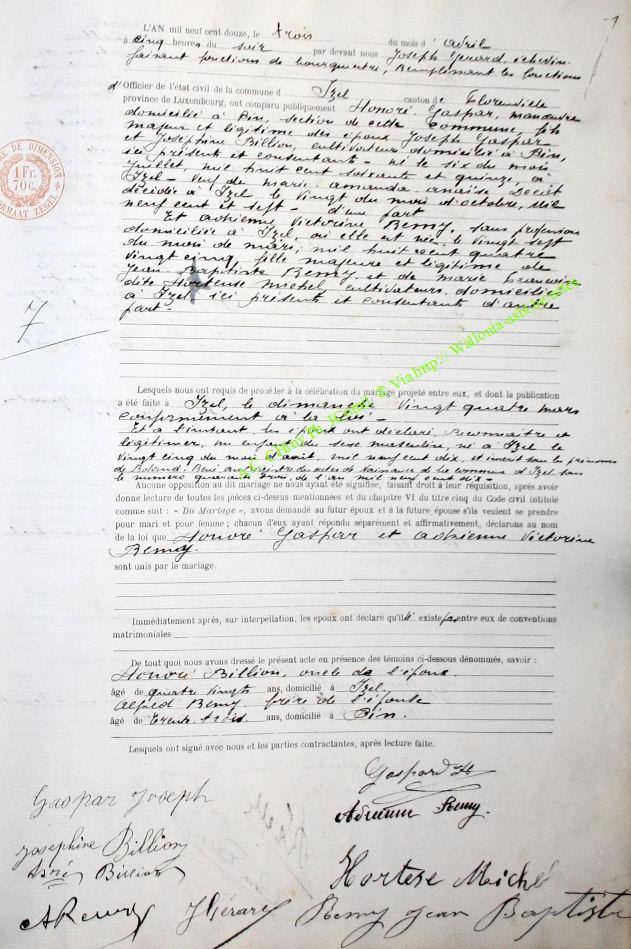 1
L'AN mil neuf cent douze, le trois du mois d avril
à cinq heures du soir par devant nous Joseph Gerard, échevin
faisant fonctions de bourgmestre, Remplissant les fonctions
d'Officier de l'état civil de la commune d Izel canton de Florenville
province de Luxembourg, ont comparu publiquement Honoré Gaspar, manœuvre
domicilié à Pin, section de cette commune, fils
majeur et légitime des époux Joseph Gaspar
et Joséphine Billion, cultivateurs domiciliés à Pin,
ici présents et consentants - né le six du mois
juillet mil huit cent soixante et quinze à
Izel - veuf de marie amanda anaïse
décédée à Izel le vingt du mois d'octobre, mil
neuf cent et sept d'une part
Et adrienne Victorine Remy, sans profession
domiciliée à Izel, où elle est née, le vingt sept
du mois de mars, mil huit cent quatre
vingt cinq, fille majeure et légitime de
Jean Baptiste Remy et de marie Françoise
dite Hortense Michel, cultivateurs, domiciliés
à Izel, ici présents et consentants d'autre
part -
7
Lesquels nous ont requis de procéder à la célébration du mariage projeté entre eux, et dont la publication
a été faite à Izel, le dimanche vingt quatre mars
conformément à la loi -
Et à l'instant les époux ont déclaré, reconnaître et
légitimer, un enfant du sexe masculin, né à Izel le
vingt cinq du mois d'août, mil neuf cent dix, et inscrit sous les prénoms
de René au registre des actes de Naissance de la commune d'Izel sous
le numéro quarante trois, de l'an mil neuf cent dix -
Aucune opposition au dit mariage ne nous ayant été signifiée, faisant droit à leur réquisition, après avoir
donné lecture de toutes les pièces ci-dessus mentionnées et du chapitre VI du titre cinq du Code civil intitulé
comme suit : « Du Mariage », avons demandé au futur époux et à la future épouse s'ils veulent se prendre
pour mari et pour femme ; chacun d'eux ayant répondu séparément et affirmativement, déclarons au nom
de la loi que Honoré Gaspar et adrienne Victorine
Remy.
sont unis par le mariage.
Immédiatement après, sur interpellation, les epoux ont déclaré qu'il n'existe pas entre eux de conventions
matrimoniales
De tout quoi nous avons dressé le présent acte en présence des témoins ci-dessous dénommés, savoir :
Honoré Billion, oncle de l'époux.
âgé de quatre vingts ans, domicilié à Izel,
Alfred Remy, frère de l'épouse
âgé de trente trois ans, domicilié à Pin.
Lesquels ont signé avec nous et les parties contractantes, après lecture faite.
Gaspard H
Gaspar Joseph
Adrienne Remy.
Josephine Billion
Billion
Hortese Michel
A Remy J Gérard Remy Jean Baptiste
DE DIMENSION
1 Fr.
70 c.
FORMAAT ZEGEL
Via http:// Wallonia-asbl